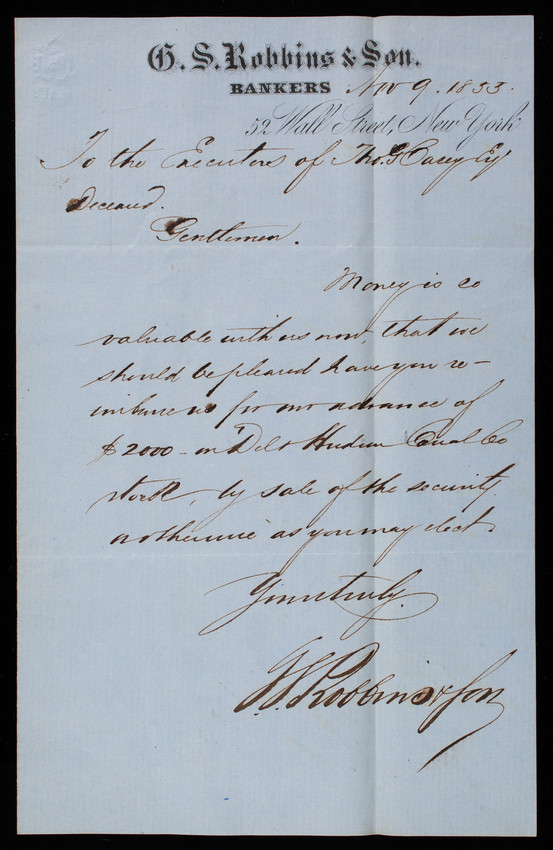 G. S. Robbins & Son.
BANKERS Nov 9. 1853.
52 Wall Street, New York
To the Executors of Thos. G Casey Esq
Deceased.
Gentlemen.
Money is so
valuable with us now, that we
should be pleased have you re-
imburse us for our advance of
$2000 - on Del & Hudson Canal Co
stock, by sale of the security
or otherwise as you may elect.
Yours truly.
G. S. Robbins & Son